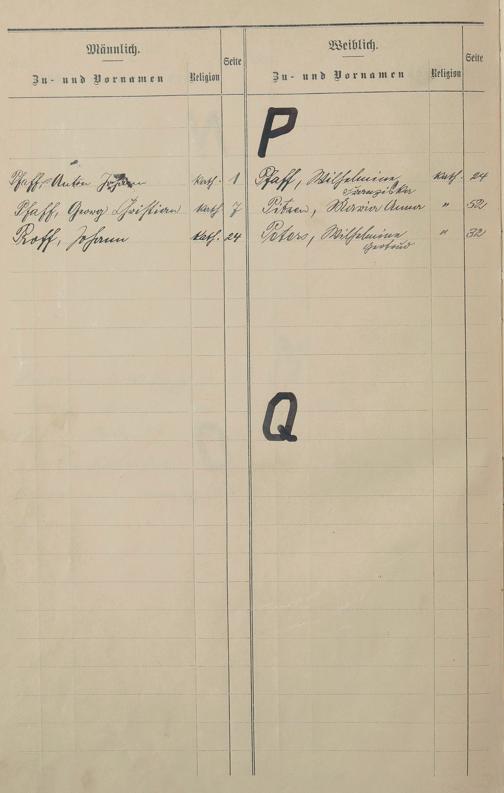 Männlich.
Zu- und Vornamen Religion Seite
Pfaff, Anton Johann kath. 1
Pfaff, Georg Christian kath. 7
Proff, Johann kath. 24
Weiblich.
Zu- und Vornamen Religion Seite
P
Pfaff, Wilhelmine kath. 24
Franziska
Maria Anna " 52
Peters, Wilhelmine " 32
Gertrud
Q